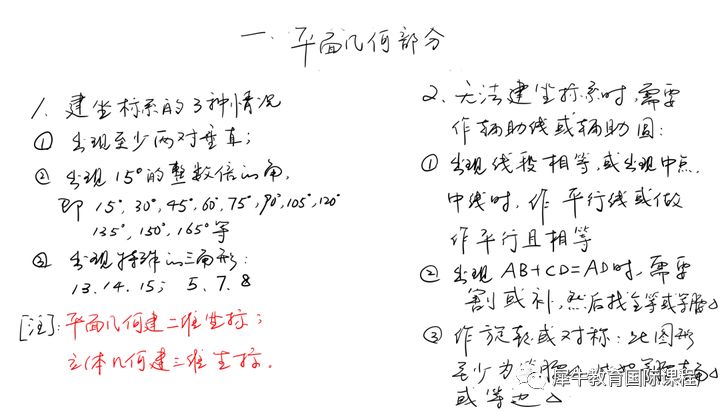 一、平面几何部分
1、建坐标系的3种情况
① 出现至少两对垂直；
② 出现15°的整数倍的角，
即 15°, 30°, 45°, 60°, 75°, 90°, 105°, 120°
135°, 150°, 165° 等
③ 出现特殊的三角形：
13、14、15； 5、7、8
[注]：平面几何建二维坐标；
立体几何建三维坐标。
2、无法建坐标系时，需要
作辅助线或辅助圆：
① 出现线段相等，或出现中点、
中线时，作平行线或做
作平行且相等
② 出现 AB+CD=AD时，需要
割或补，然后找全等或等腰△
③ 作旋转或对称：此图形
至少为等腰
或等边△
犀牛教育国际课程